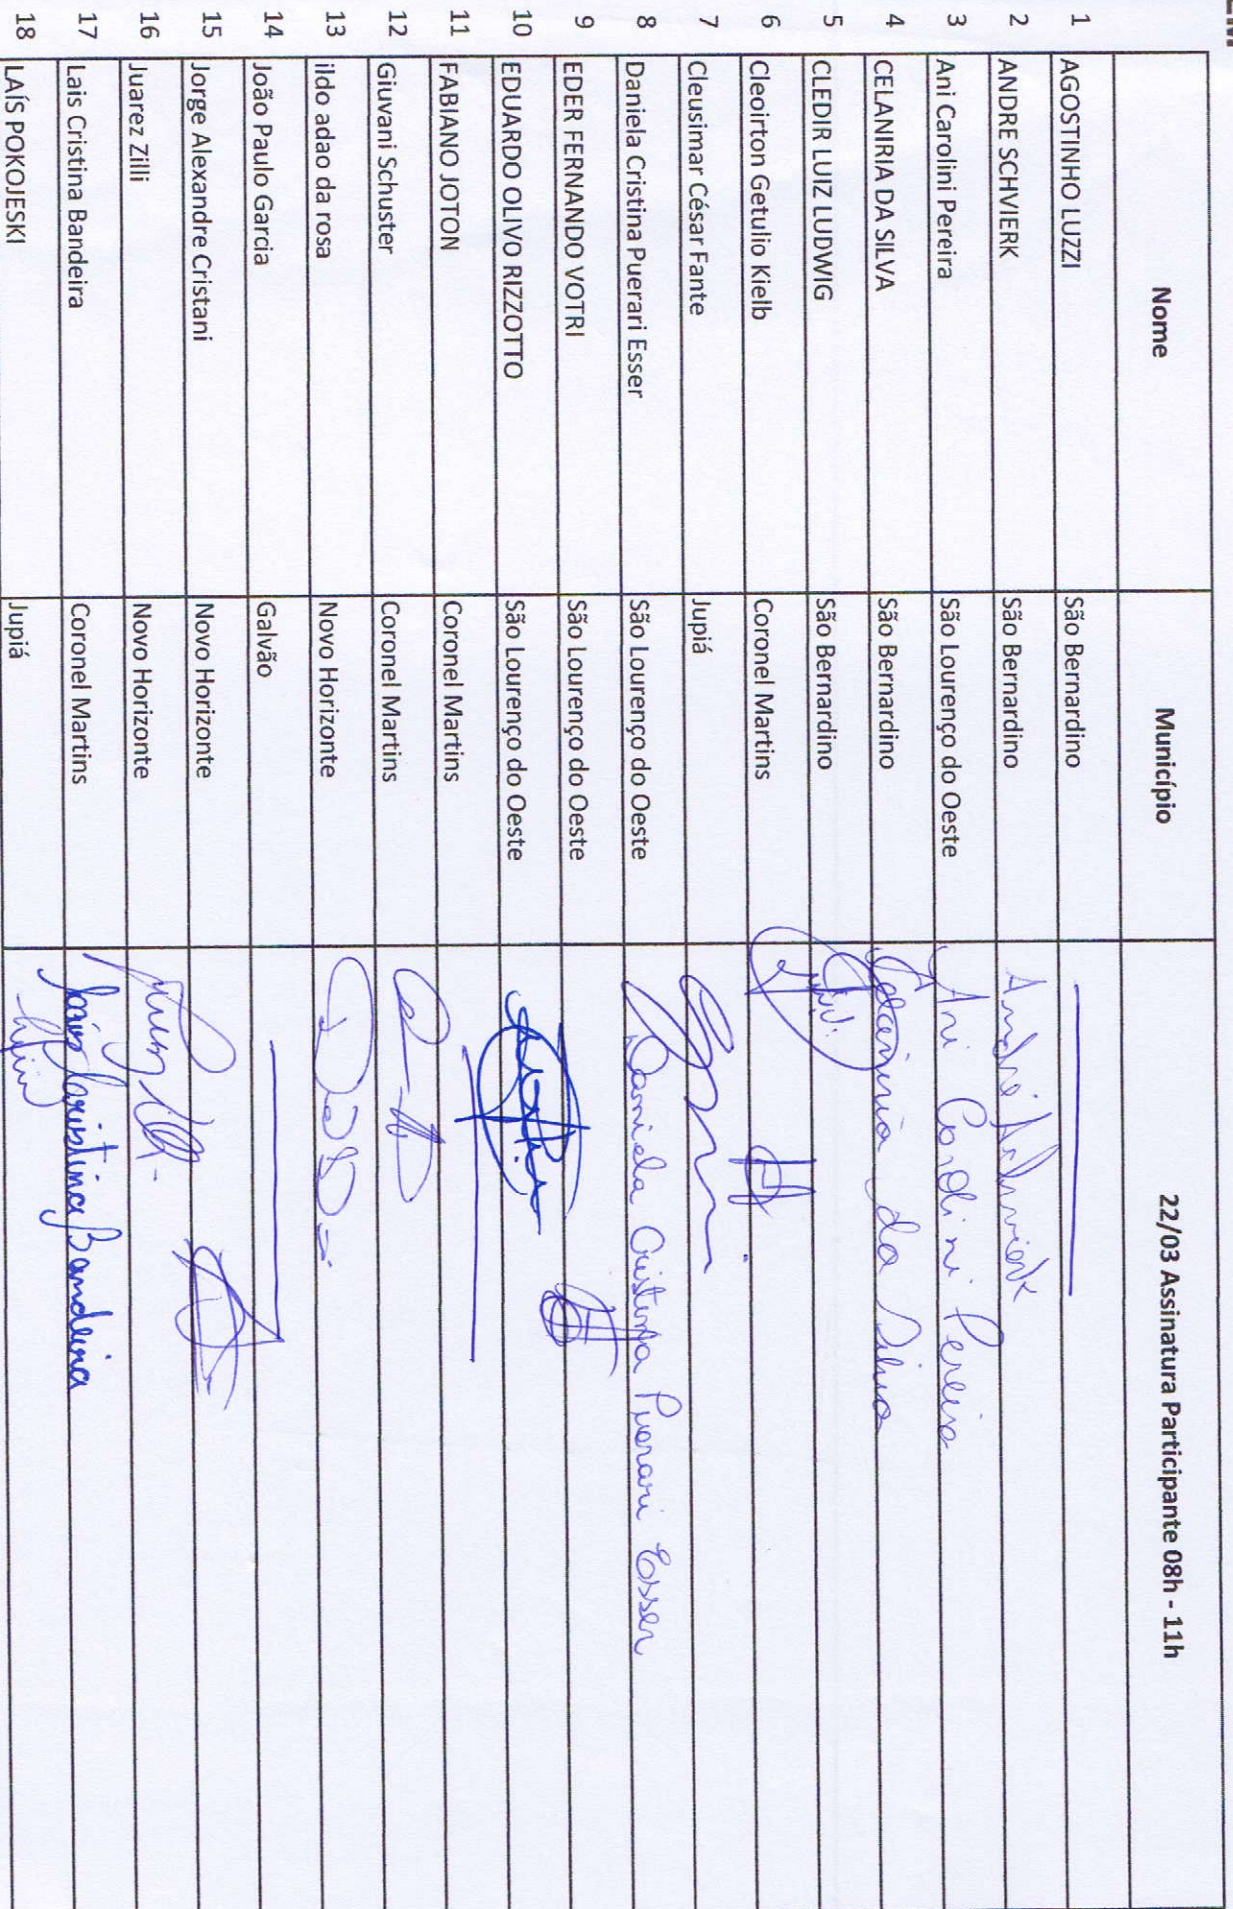 Nome Município 22/03 Assinatura Participante 08h - 11h
1 AGOSTINHO LUZZI São Bernardino
2 ANDRE SCHVIERK São Bernardino André Schvierk
3 Ani Carolini Pereira São Lourenço do Oeste Ani Carolini Pereira
4 CELANIRIA DA SILVA São Bernardino Celaniria da Silva
5 CLEDIR LUIZ LUDWIG São Bernardino
6 Cleoirton Getulio Kielb Coronel Martins
7 Cleusimar César Fante Jupiá
8 Daniela Cristina Puerari Esser São Lourenço do Oeste Daniela Cristina Puerari Esser
9 EDER FERNANDO VOTRI São Lourenço do Oeste
10 EDUARDO OLIVO RIZZOTTO São Lourenço do Oeste
11 FABIANO JOTON Coronel Martins
12 Giuvani Schuster Coronel Martins
13 ildo adao da rosa Novo Horizonte
14 João Paulo Garcia Galvão
15 Jorge Alexandre Cristani Novo Horizonte
16 Juarez Zilli Novo Horizonte
17 Lais Cristina Bandeira Coronel Martins Lais Cristina Bandeira
18 LAÍS POKOJESKI Jupiá